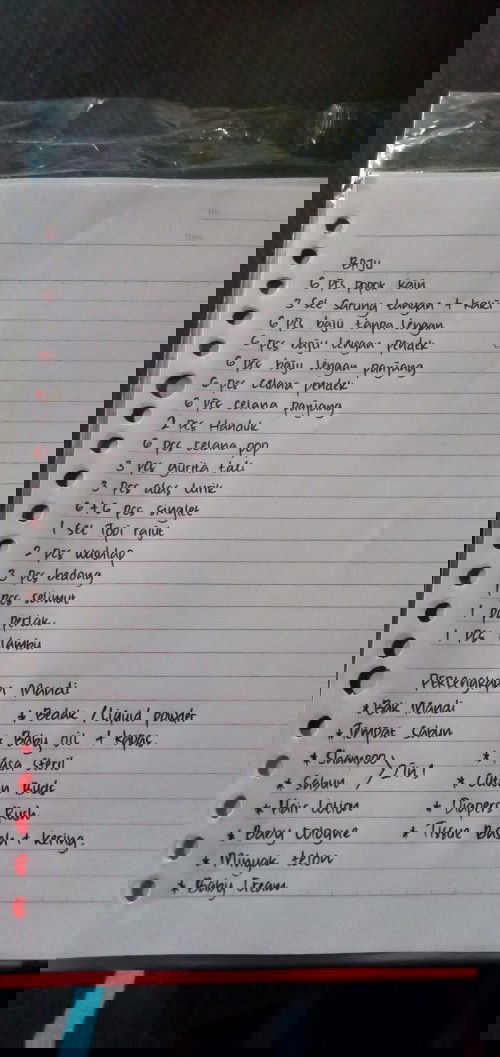 No.
Date
BAJU
6 Pcs popok kain
3 set sarung tangan + kaki
6 Pcs baju tanpa lengan
6 Pcs baju lengan pendek
6 Pcs baju lengan panjang
6 Pcs celana pendek
6 Pcs celana panjang
2 Pcs Handuk
6 Pcs celana pop
3 Pcs gurita tali
3 Pcs alas
6 + 6 Pcs singlet
1 set Topi rajut
2 Pcs washlap
3 Pcs bedong
1 Pcs selimut
1 Pcs perlak
1 Pcs kelambu
Perlengkapan Mandi
* Bak Mandi
* Tempat sabun
* Shampoo
* Sabun 2 in 1
* Hair Lotion
* Baby Cologne
* Minyak telon
* Baby Cream
* Bedak / Liquid powder
* Baby oil + Kapas
* Kasa steril
* Cutton Buds
* Tissue Basah + kering